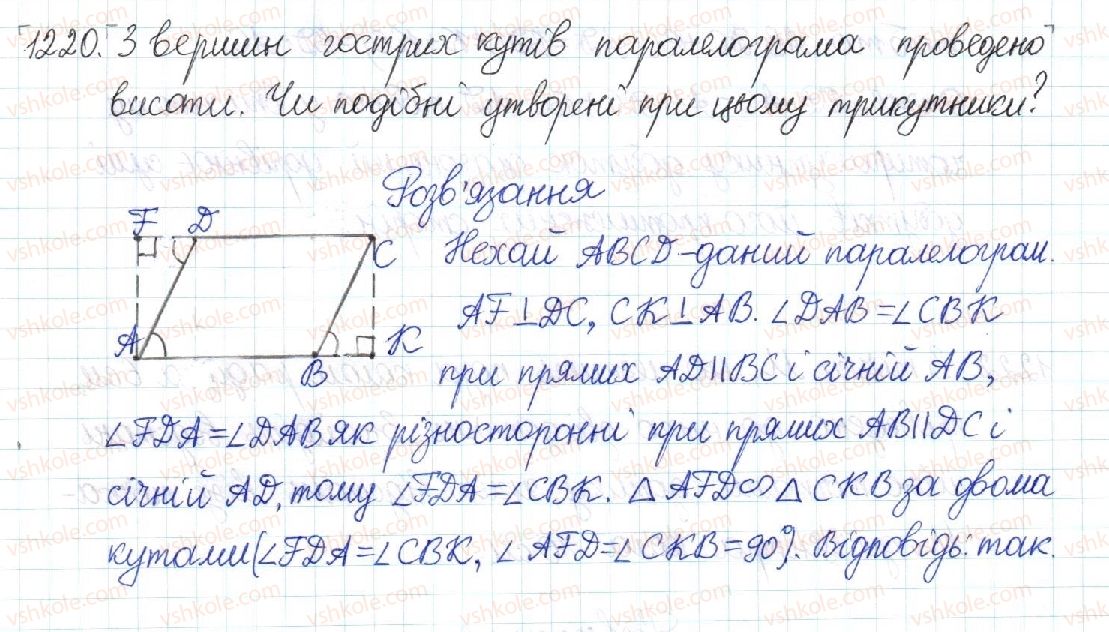 1220. З вершин гострих кутів паралелограма проведено
висоти. Чи подібні утворені при цьому трикутники?
Розв'язання
F D
C
A
B
K
Нехай ABCD - даний паралелограм.
AF⊥DC, CK⊥AB. ∠DAB=∠CBK
при прямих AD||BC і січній AB,
∠FDA=∠DAB як різносторонні при прямих AB||DC і
січній AD, тому ∠FDA=∠CBK. △AFD∽△CKB за двома
кутами (∠FDA=∠CBK, ∠AFD=∠CKB=90°). Відповідь: так.